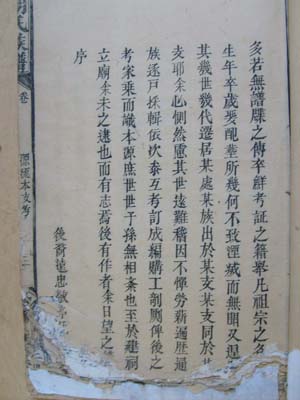 多若無譜牒之傳卒鮮考証之籍舉凡祖宗之名
生年卒歲娶配塟所幾何不致湮滅而無聞又
其幾世幾代遷居某處某族出於某支某支同於
支耶余心惻然慮其世遠難稽因不憚勞薪遍歷通
族逐戶採輯依次叅互考訂成編購工剞劂俾後之
考家乘而識本源庶世世子孫無相紊也至於建祠
立廟余未之逮也而有志焉後有作者余日望之
序
後裔遠忠敬
氏族譜
卷
源流本支考
三